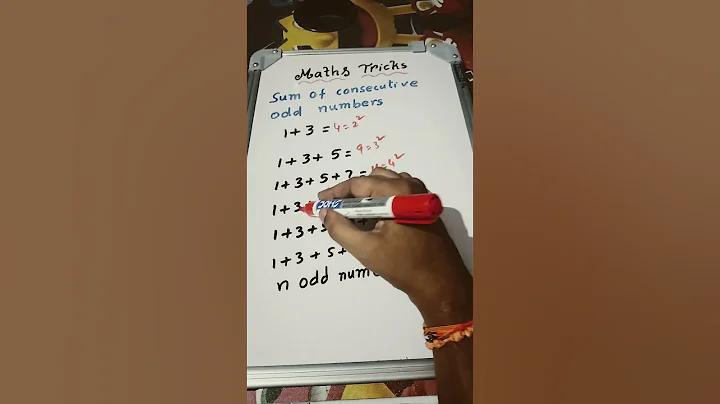 Maths Tricks
Sum of consecutive
odd numbers
1 + 3 = 4 = 2²
1 + 3 + 5 = 9 = 3²
1 + 3 + 5 + 7 = 4²
1 + 3
1 + 3 + 5
1 + 3 + 5 +
n odd num